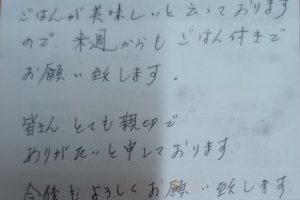 ごはんが美味しいと云っております
ので、来週からも ごはん付きで
お願い致します。
皆さん、とても親切で
ありがたいと申しております。
今後もよろしくお願い致します。